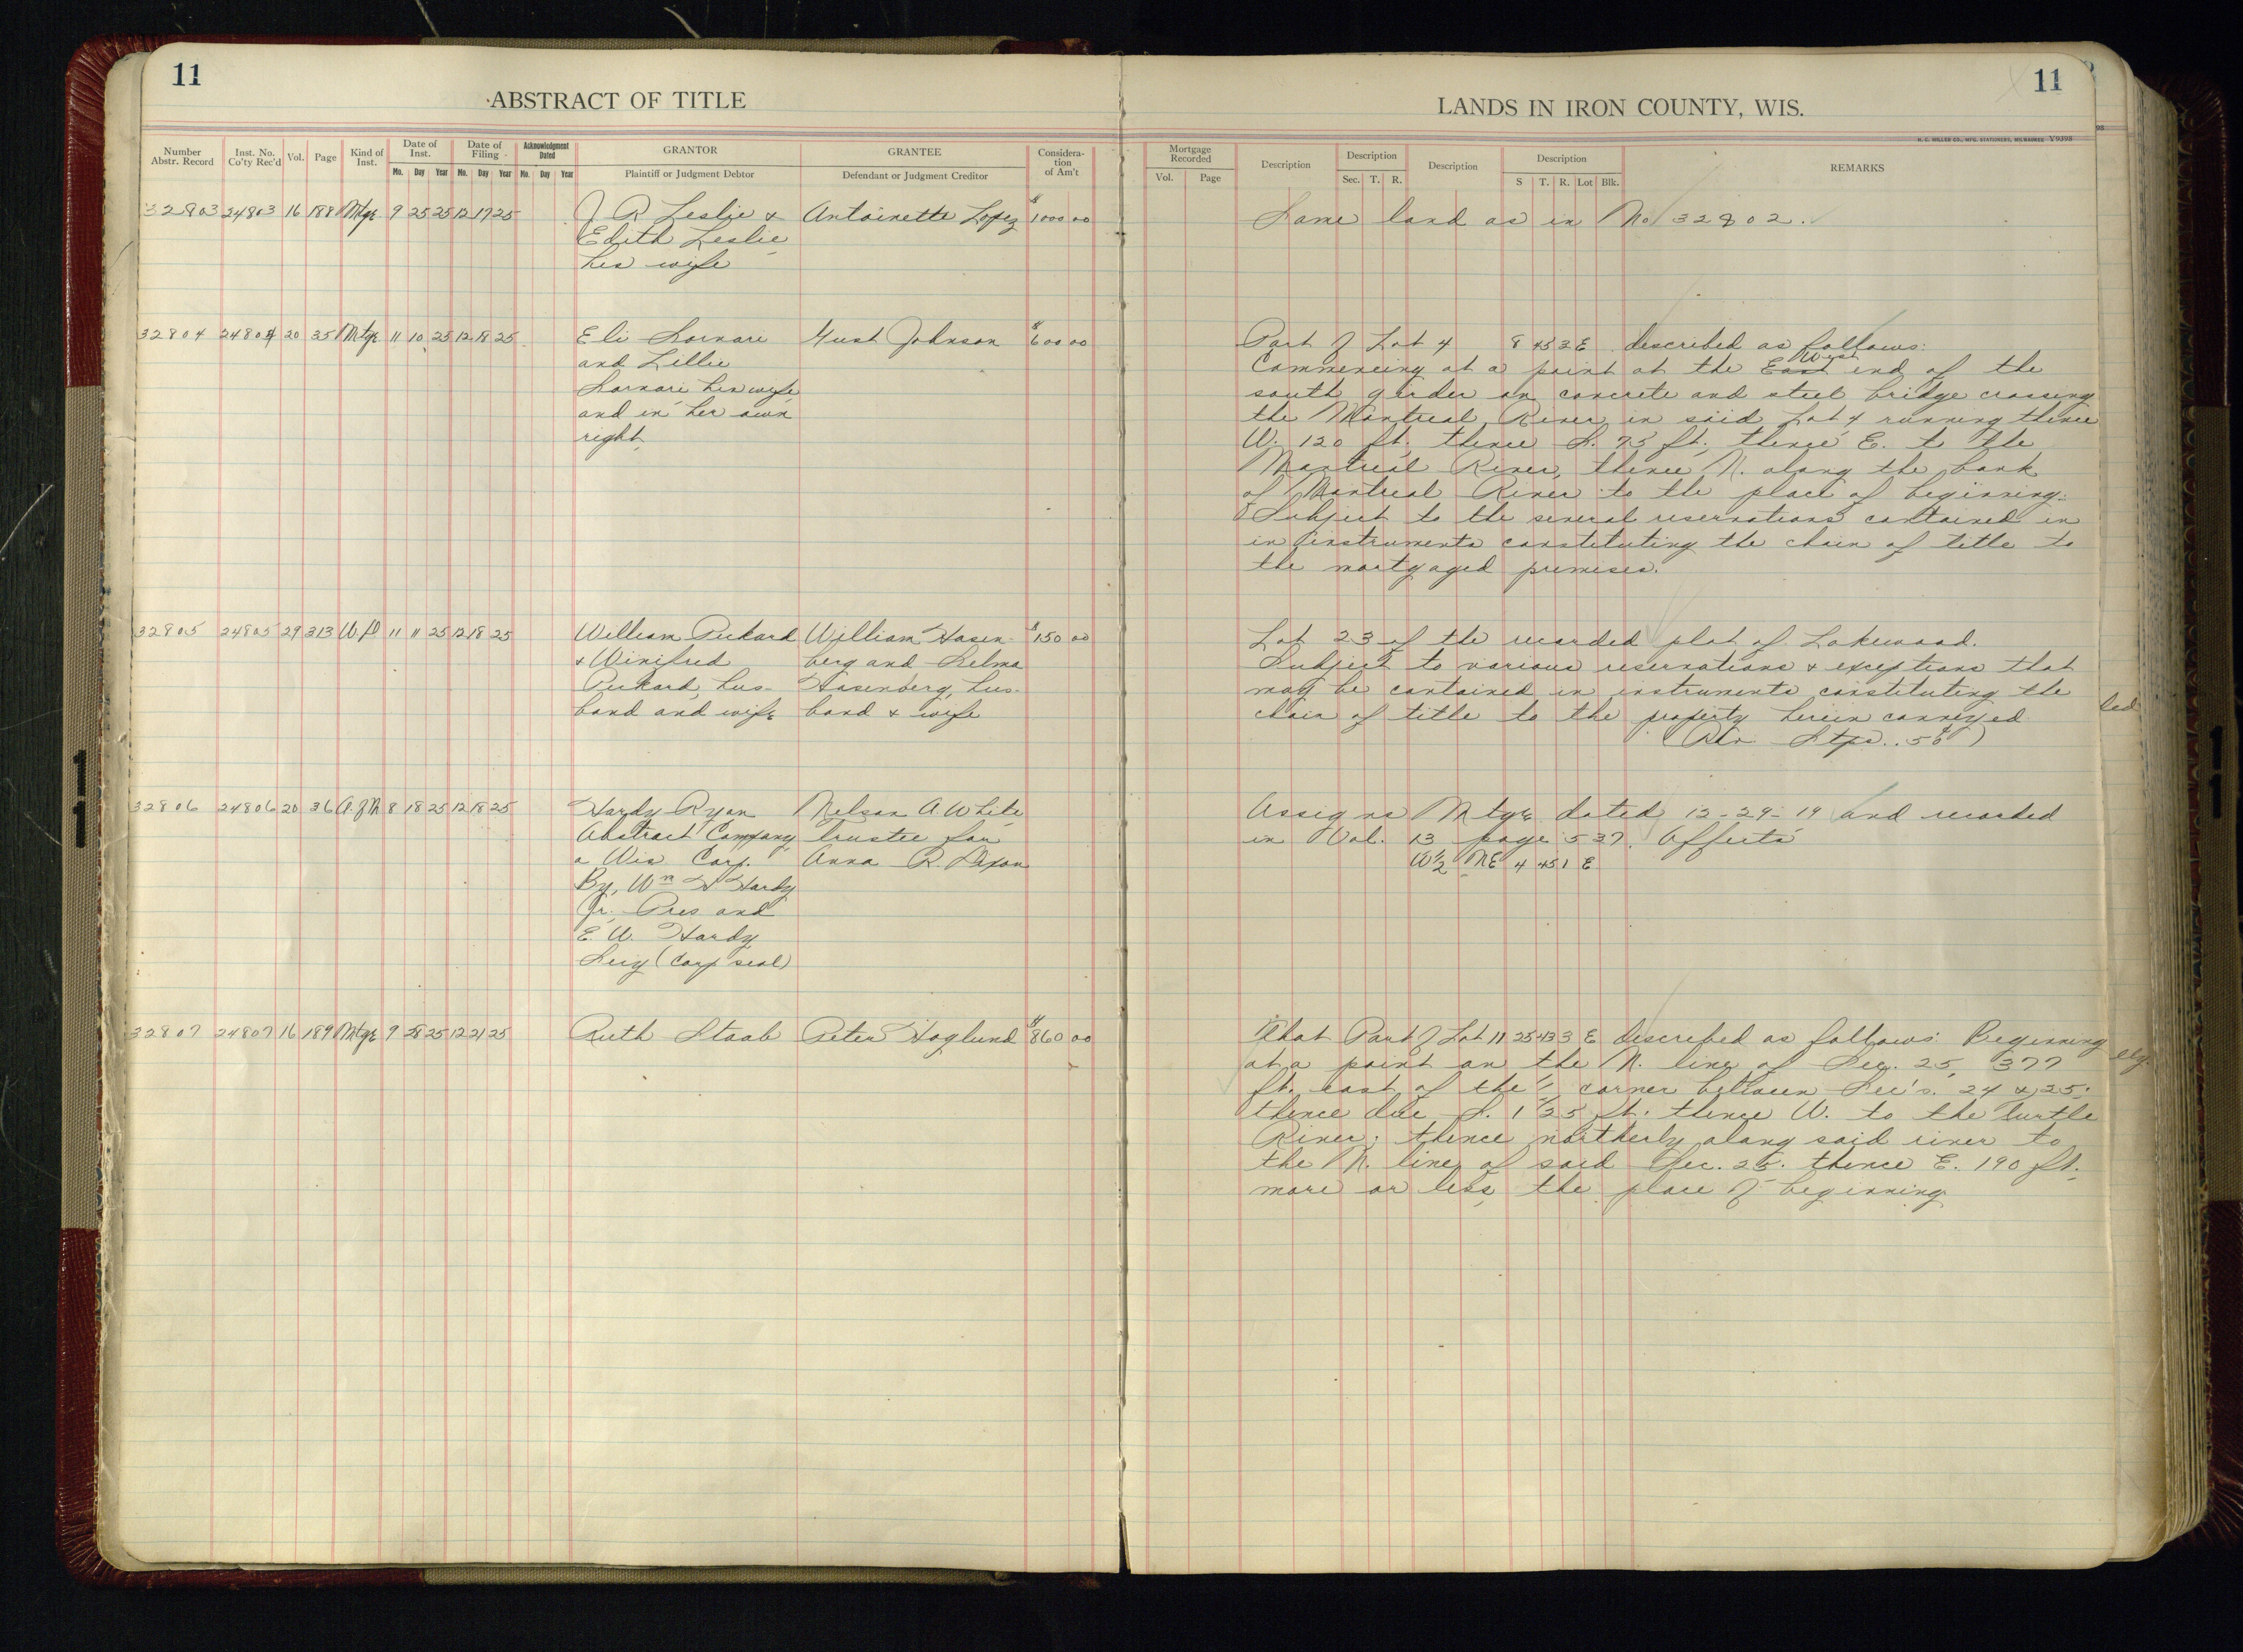 11
ABSTRACT OF TITLE
Number Abstr. Record
Inst. No. Co'ty Rec'd
Vol.
Page
Kind of Inst.
Date of Inst.
Mo. Day Year
Date of Filing
Mo. Day Year
Acknowledgment Dated
Mo. Day Year
GRANTOR
Plaintiff or Judgment Debtor
GRANTEE
Defendant or Judgment Creditor
Considera-
tion
of Am't
32803 24803 16 188 Mtge 9 25 25 12 17 25 J R Leslie & Antoinette Lopez $1000 00
Edith Leslie
his wife
32804 24804 20 35 Mtge 11 10 25 12 18 25 Eli Gust Johnson $600 00
and Lillie
his wife
and in her own
right
32805 24805 29 313 W.D 11 11 25 12 18 25 William Pickard William Hasen- $150 00
& Winifred berg and Selma
Pickard, hus- Hasenberg, hus-
band and wife band & wife
32806 24806 20 36 A.of M 8 18 25 12 18 25 Hardy Ryan Nelson A. White
Abstract Company, Trustee for
a Wis Corp. Anna R. Dixon
By, Wm H Hardy
Jr. Pres and
E. W. Hardy
Secy (Corp seal)
32807 24807 16 189 Mtge 9 28 25 12 21 25 Ruth Staab Peter Hoglund $860 00
11
LANDS IN IRON COUNTY, WIS.
H. C. MILLER CO., MFG. STATIONERS, MILWAUKEE Y9398
Mortgage Recorded
Vol. Page
Description
Description
Sec. T. R.
Description
Description
S T. R. Lot Blk.
REMARKS
Same land as in No 32802.
Part of Lot 4 8 45 2 E described as follows:
West
Commencing at a point at the East end of the
south girder on concrete and steel bridge crossing
the Montreal River in said Lot 4 running thence
W. 120 ft, thence S. 75 ft, thence E. to the
Montreal River, thence N. along the bank
of Montreal River to the place of beginning.
Subject to the several reservations contained in
in instruments constituting the chain of title to
the mortgaged premises.
Lot 23 of the recorded plat of Lakewood.
Subject to various reservations & exceptions that
may be contained in instruments constituting the
chain of title to the property herein conveyed
(Rev Stps .50¢)
Assigns Mtge dated 12-29-19 and recorded
in Vol. 13 page 537. Affects
W½ NE 4 45 1 E
That Part of Lot 11 25 43 3 E described as follows: Beginning
at a point on the N. line of Sec. 25, 377
ft. east of the corner between Sec's. 24 & 25.
thence due S. 125 ft. thence W. to the Turtle
River; thence northerly along said river to
the N. line of said Sec. 25. thence E. 190 ft.
more or less, the place of beginning.